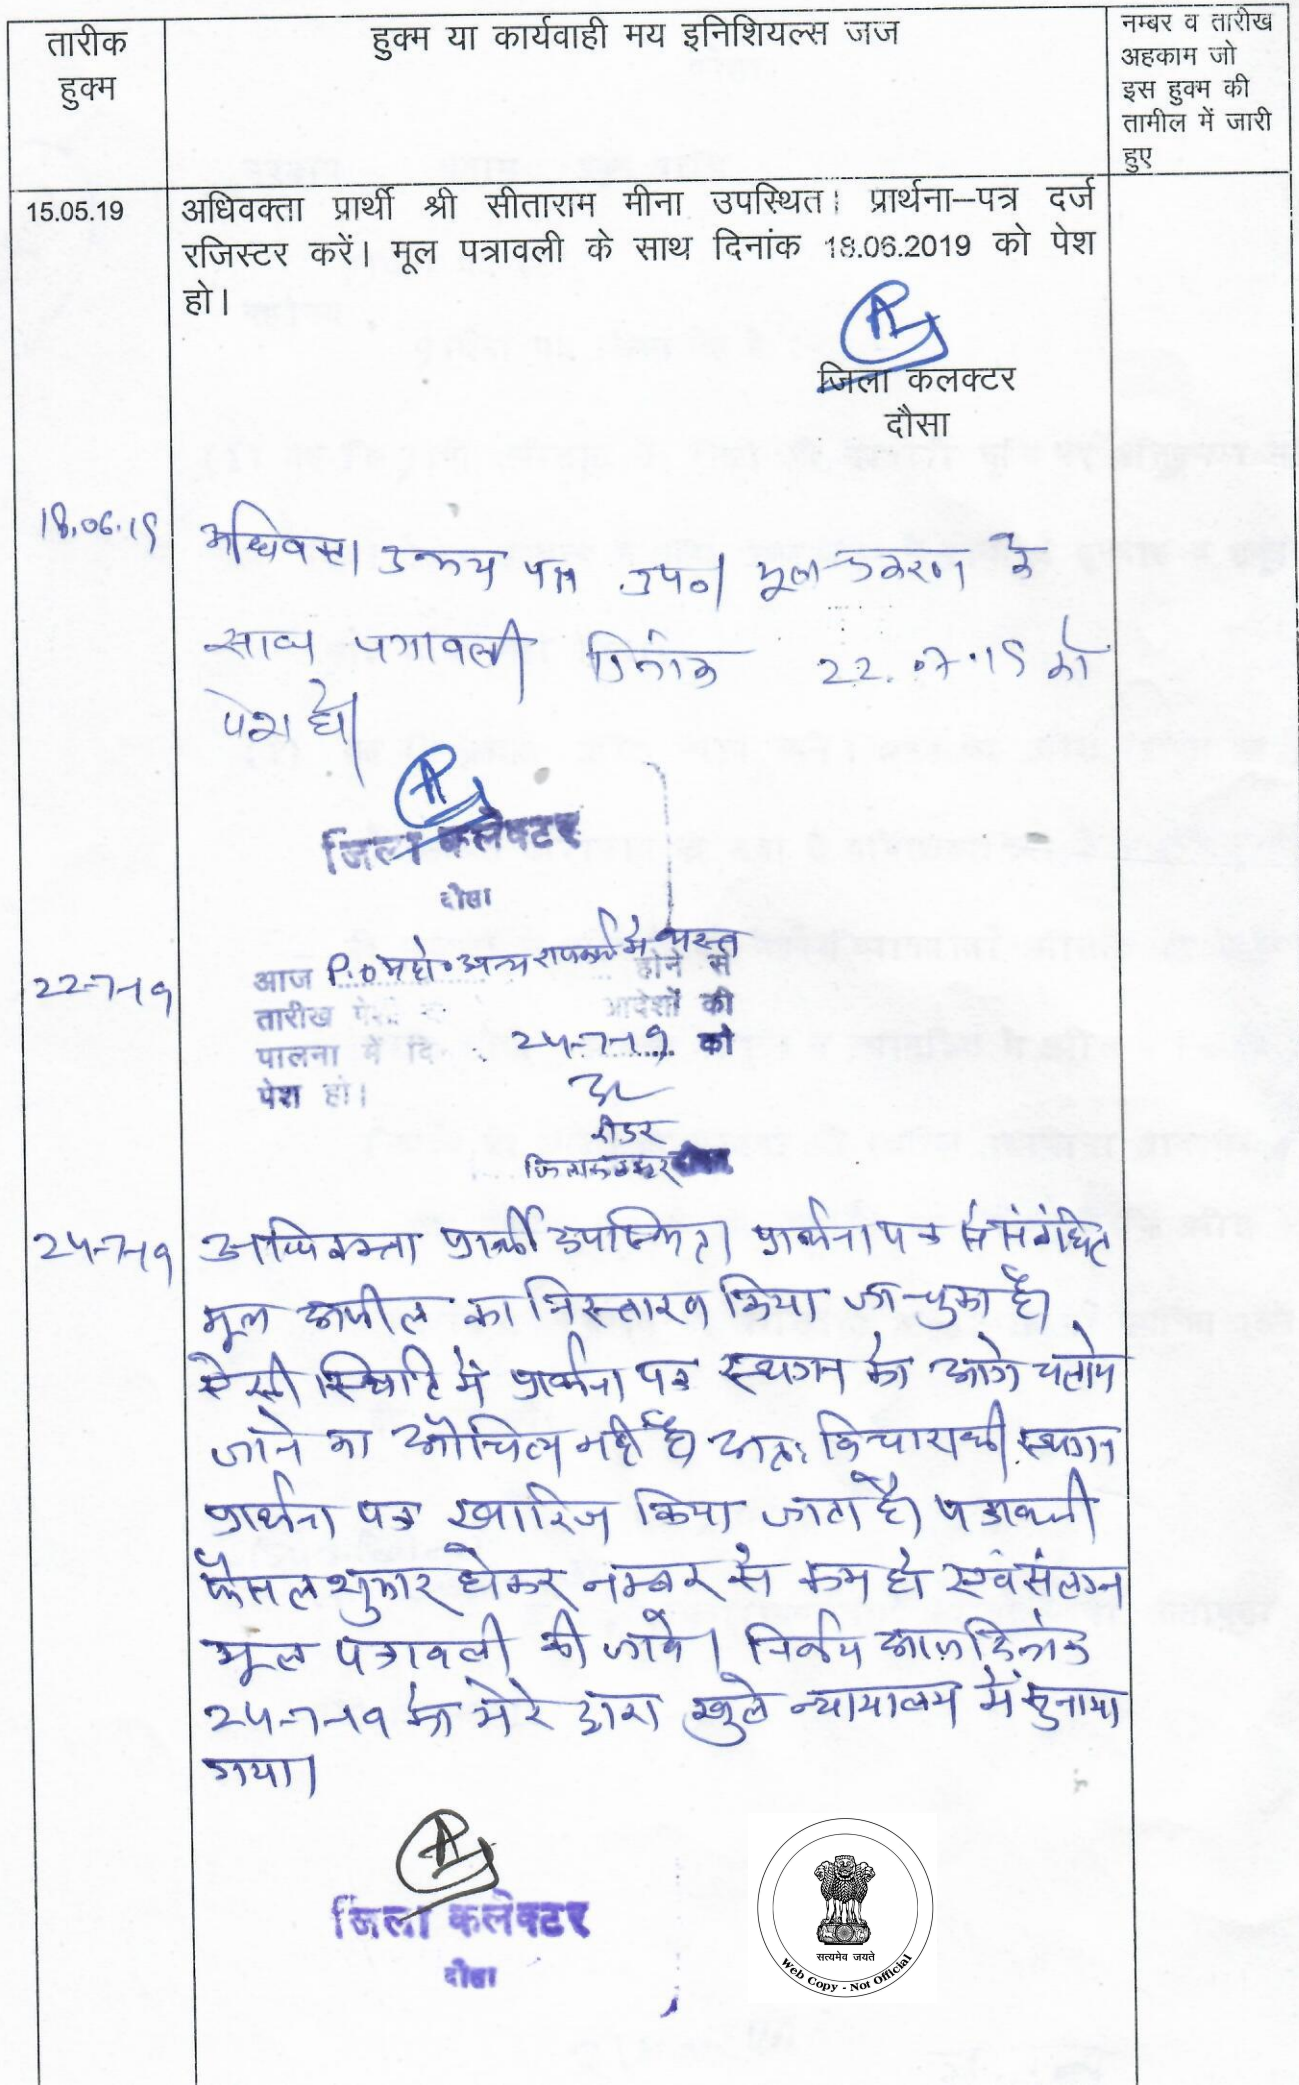 तारीक
हुक्म
हुक्म या कार्यवाही मय इनिशियल्स जज
नम्बर व तारीख
अहकाम जो
इस हुक्म की
तामील में जारी
हुए
15.05.19
अधिवक्ता प्रार्थी श्री सीताराम मीना उपस्थित। प्रार्थना–पत्र दर्ज
रजिस्टर करें। मूल पत्रावली के साथ दिनांक 18.06.2019 को पेश
हो।
जिला कलक्टर
दौसा
18.06.19
अधिवक्ता उभय पक्ष उप०। मूल प्रकरण के
साथ पत्रावली दिनांक 22.07.19 को
पेश हो।
जिला कलेक्टर
दौसा
22-7-19
आज P.o महो० अन्य राजकार्य मे व्यस्त होने से
तारीख पेशी आदेशों की
पालना में दि 24-7-19 को
पेश हो।
रीडर
जिला कलक्टर दौसा
24-7-19
अधिवक्ता प्रार्थी उपस्थित। प्रार्थना पत्र से संबंधित
मूल अपील का निस्तारण किया जा चुका है।
ऐसी स्थिति मे प्रार्थना पत्र स्थगन को आगे चलाये
जाने का औचित्य नही है। अतः विचाराधीन स्थगन
प्रार्थना पत्र खारिज किया जाता है। पत्रावली
फैसल शुमार होकर नम्बर से कम हो एवं संलग्न
मूल पत्रावली की जावे। निर्णय आज दिनांक
24-7-19 को मेरे द्वारा खुले न्यायालय में सुनाया
गया।
जिला कलेक्टर
दौसा
सत्यमेव जयते
Web Copy - Not Official